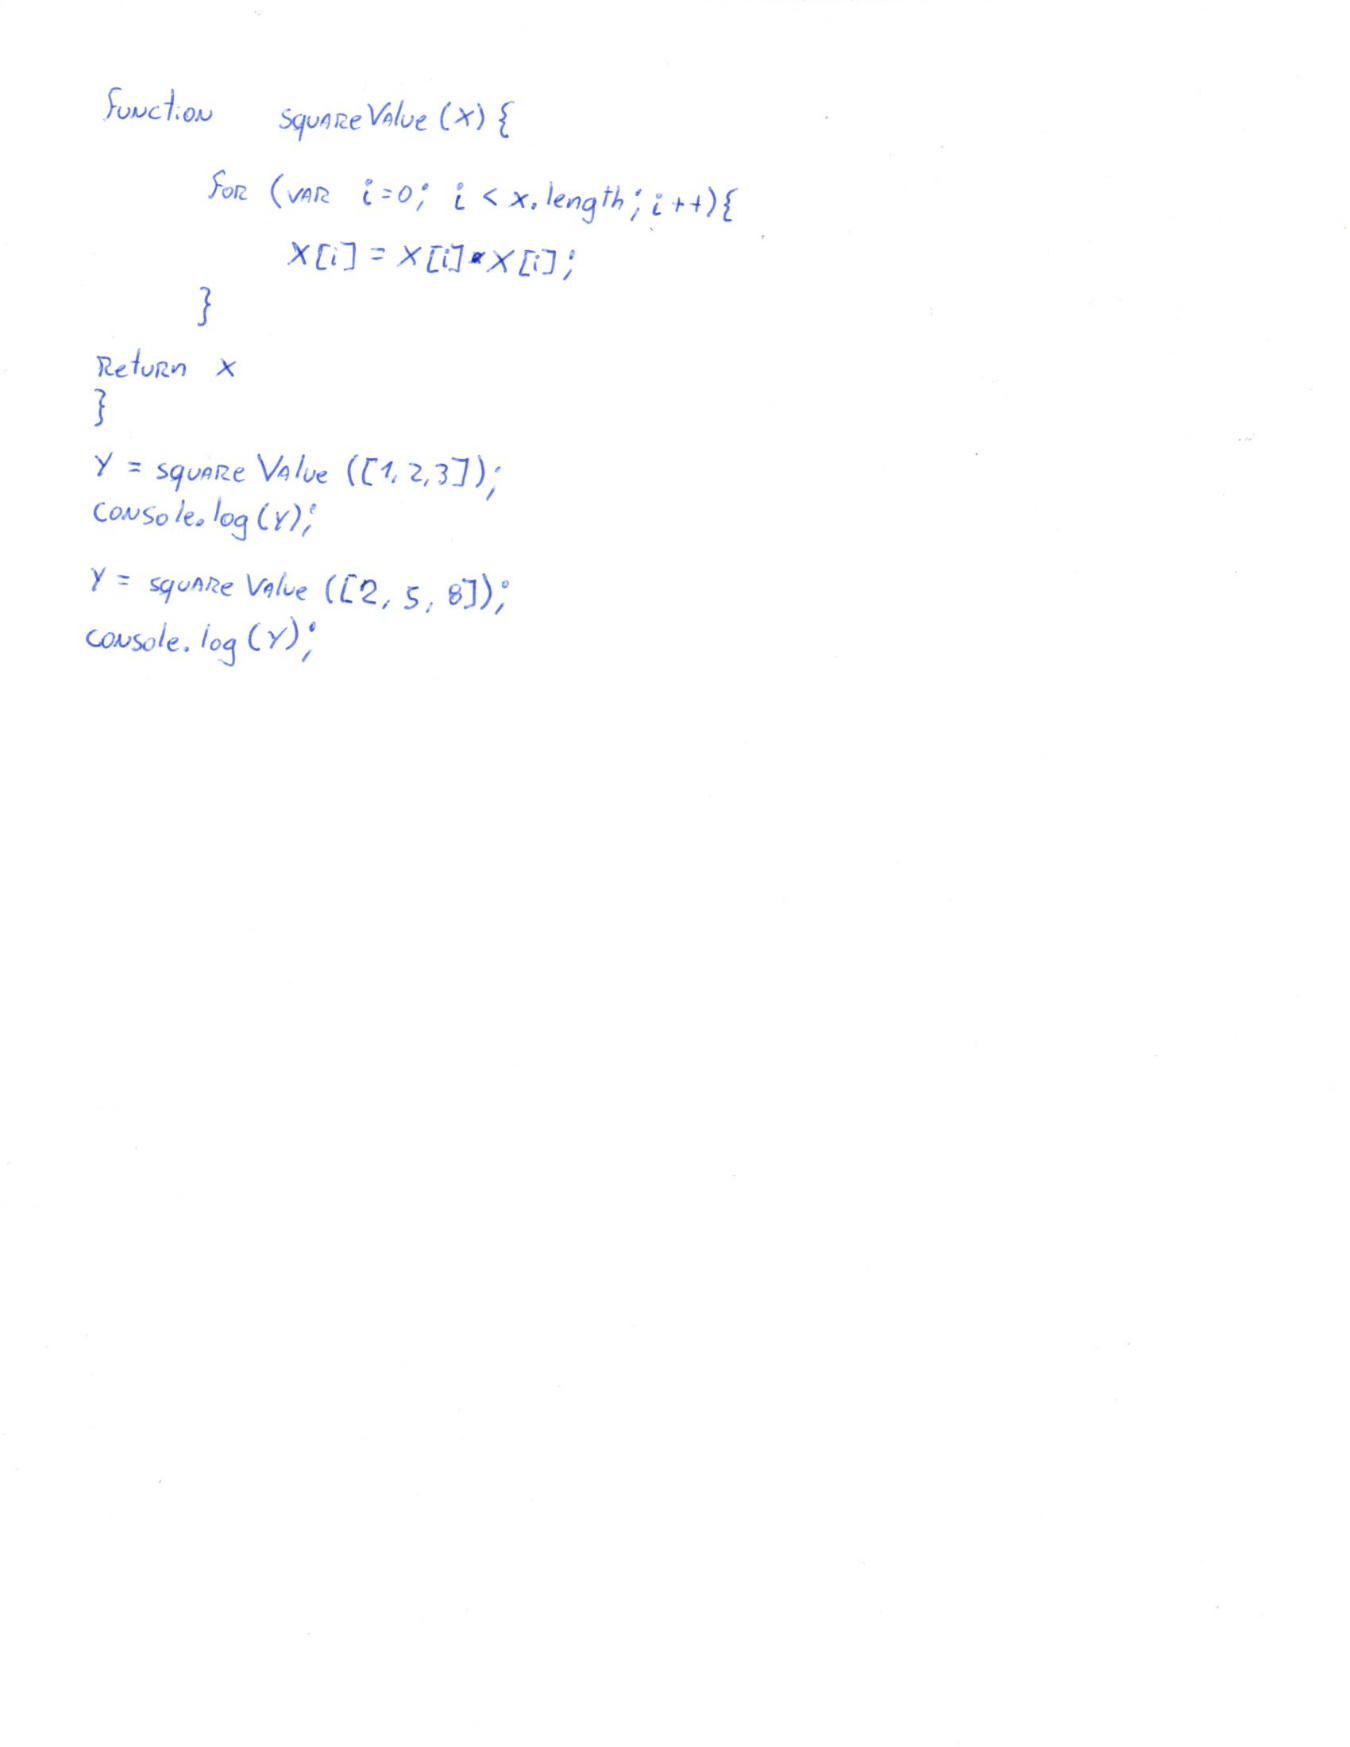 function squareValue (x) {
for (var i=0; i < x.length; i++){
x[i] = x[i]*x[i];
}
Return x
}
Y = square Value ([1,2,3]);
console.log(Y);
Y = square Value ([2, 5, 8]);
console.log(Y);